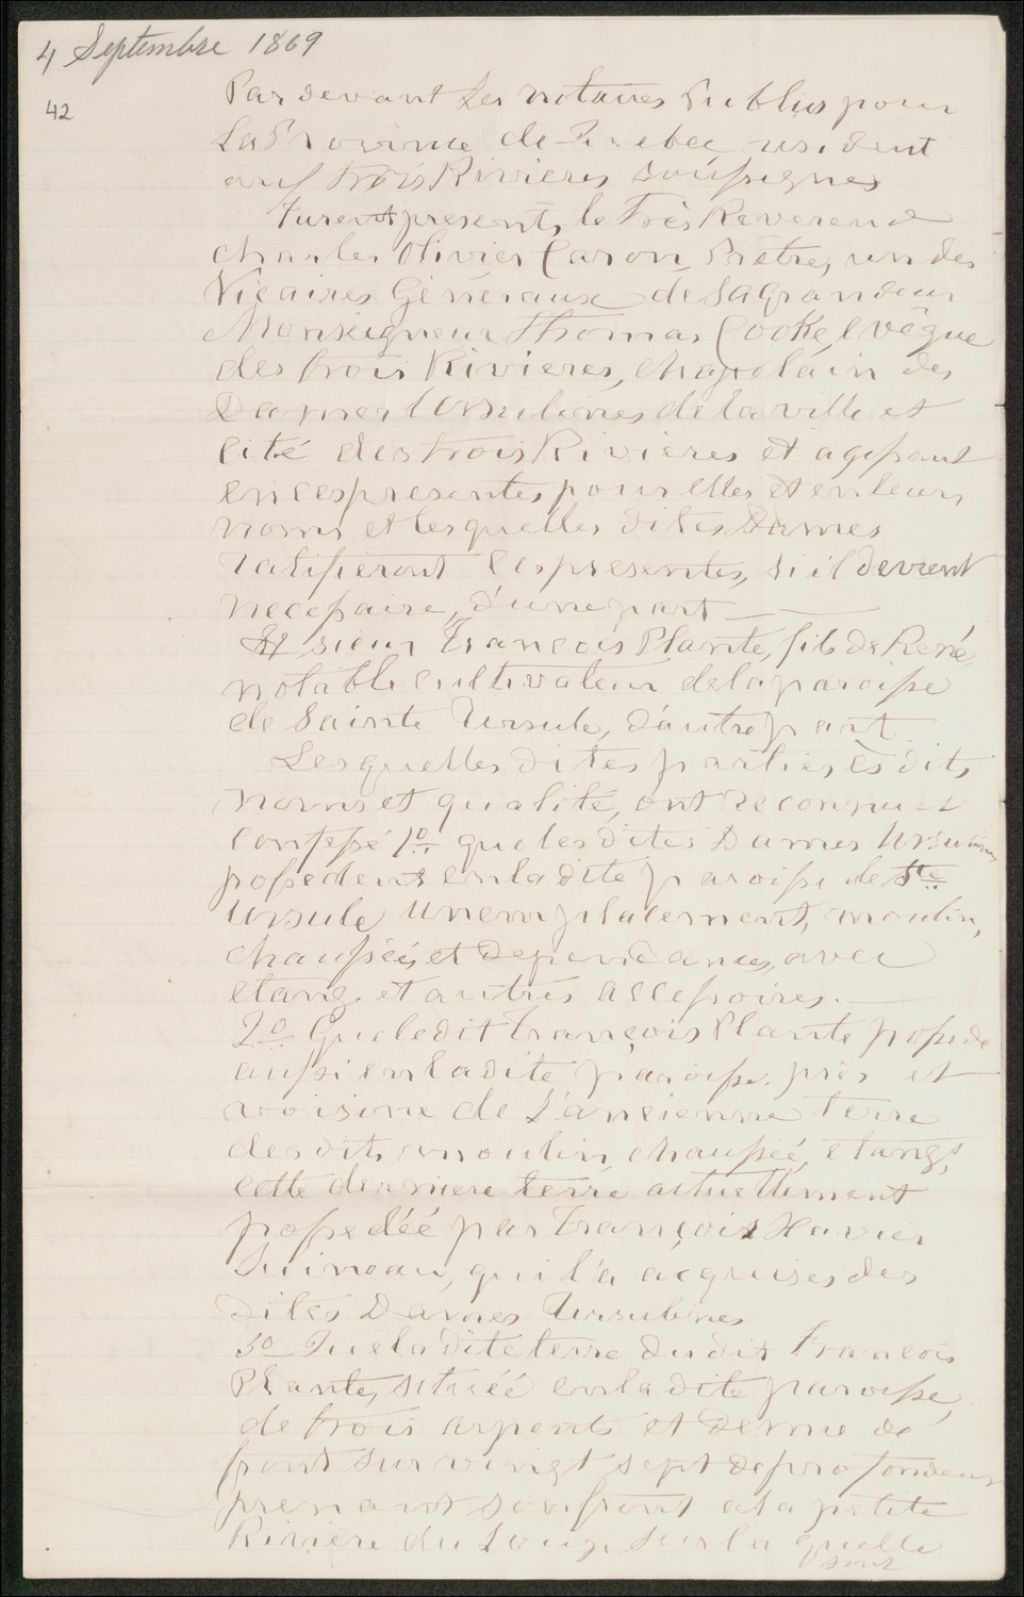 4 Septembre 1869
42
Pardevant Les notaires Publics pour
La Province de Quebec résident
aux trois Rivieres soussignés
Furent présents, le Très Reverend
Charles Olivier Caron, Prêtre, un des
Vicaires Géneraux de Sa Grandeur
Monseigneur Thomas Cooke, Evêque
des trois Rivieres, Chapelain des
Dames Ursulines de la ville et
Cité des trois Rivieres et agissant
en ces presentes, pour elles et en leurs
noms et lesquelles dites Dames
ratifieront les presentes, si il devient
necessaire, d'une part
Et sieur François Plante, fils de René,
notable cultivateur de la paroisse
de Sainte Ursule, d'autre part
Lesquelles dites parties ès dits
noms et qualité, ont reconnu et
confessé 1o que les dites Dames Ursulines
possedent en la dite paroisse de Ste
Ursule un emplacement, moulin,
chaussée, et dependances, avec
etang et autres accessoires.
2o Que le dit François Plante possede
aussi en la dite paroisse, près et
voisine de L'ancienne terre
des dits moulin, chaussée, etangs,
cette derniere terre actuellement
possedéé par François Xavier
qui l'a acquises des
dites Dames Ursulines
3o Que la dite terre du dit François
Plante, situéé en la dite paroisse,
de trois arpents et demie de
front sur vingt sept de profondeur
prenant son front à la petite
Riviere du Loup, sur la quelle
sont